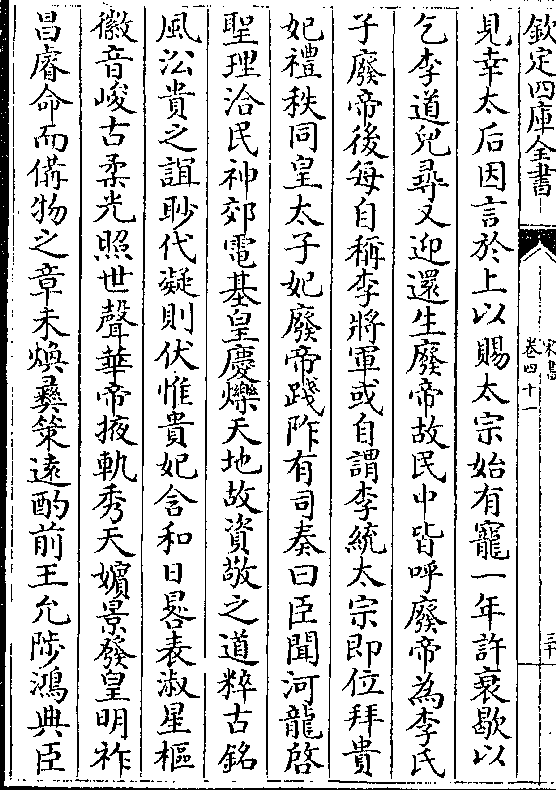 欽定四庫全書
宋書
卷四十一
三十
見幸太后因言於上以賜太宗始有寵一年許衰歇以
乞李道兒尋又迎還生廢帝故民中皆呼廢帝為李氏
子廢帝後每自稱李將軍或自謂李統太宗即位拜貴
妃禮秩同皇太子妃廢帝踐阼有司奏曰臣聞河龍啓
聖理洽民神郊電基皇慶爍天地故資敬之道粹古銘
風沿貴之誼眇代凝則伏惟貴妃含和日晷表淑星樞
徽音峻古柔光照世聲華帝掖軌秀天嬪景發皇明祚
昌睿命而備物之章未煥彞策遠酌前王允陟鴻典臣